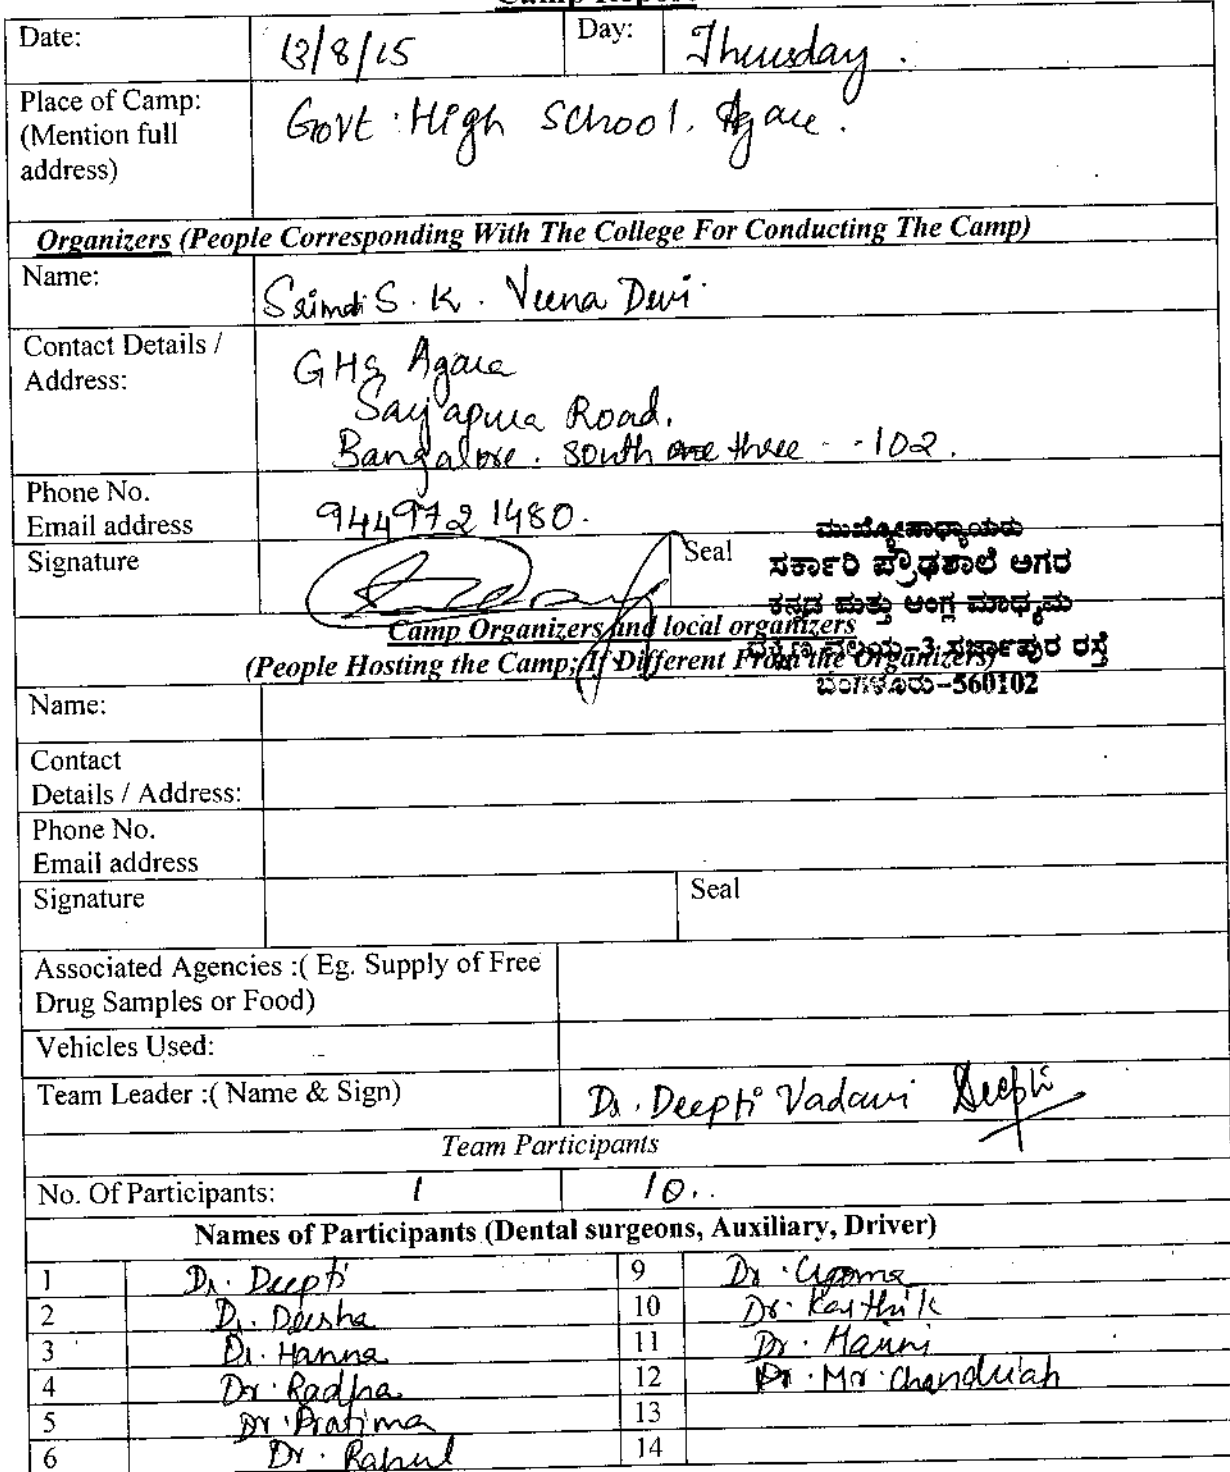 Camp Report
Date: 13/8/15 Day: Thursday.
Place of Camp: Govt. High School, Agara.
(Mention full
address)
Organizers (People Corresponding With The College For Conducting The Camp)
Name: S. K. Veena Devi
Contact Details / GHS Agara
Address: Sarjapura Road.
Bangalore. South three - 102.
Phone No. 9449721480.
Email address
Signature Seal
ಮುಖ್ಯೋಪಾಧ್ಯಾಯರು
ಸರ್ಕಾರಿ ಪ್ರೌಢಶಾಲೆ ಅಗರ
ಕನ್ನಡ ಮತ್ತು ಆಂಗ್ಲ ಮಾಧ್ಯಮ
ದಕ್ಷಿಣ ವಲಯ-3, ಸರ್ಜಾಪುರ ರಸ್ತೆ
ಬೆಂಗಳೂರು-560102
Camp Organizers and local organizers
(People Hosting the Camp; If Different From the Organizers)
Name:
Contact
Details / Address:
Phone No.
Email address
Signature Seal
Associated Agencies :( Eg. Supply of Free
Drug Samples or Food)
Vehicles Used:
Team Leader :( Name & Sign) Dr. Deepti Vadavi Deepti
Team Participants
No. Of Participants: 1 10..
Names of Participants (Dental surgeons, Auxiliary, Driver)
1 Dr. Deepti 9 Dr.
2 Dr. Deesha 10 Dr. Karthik
3 Dr. Hanna 11 Dr.
4 Dr. Radha 12 Mr. Chandriah
5 Dr. Pratima 13
6 Dr. Rahul 14